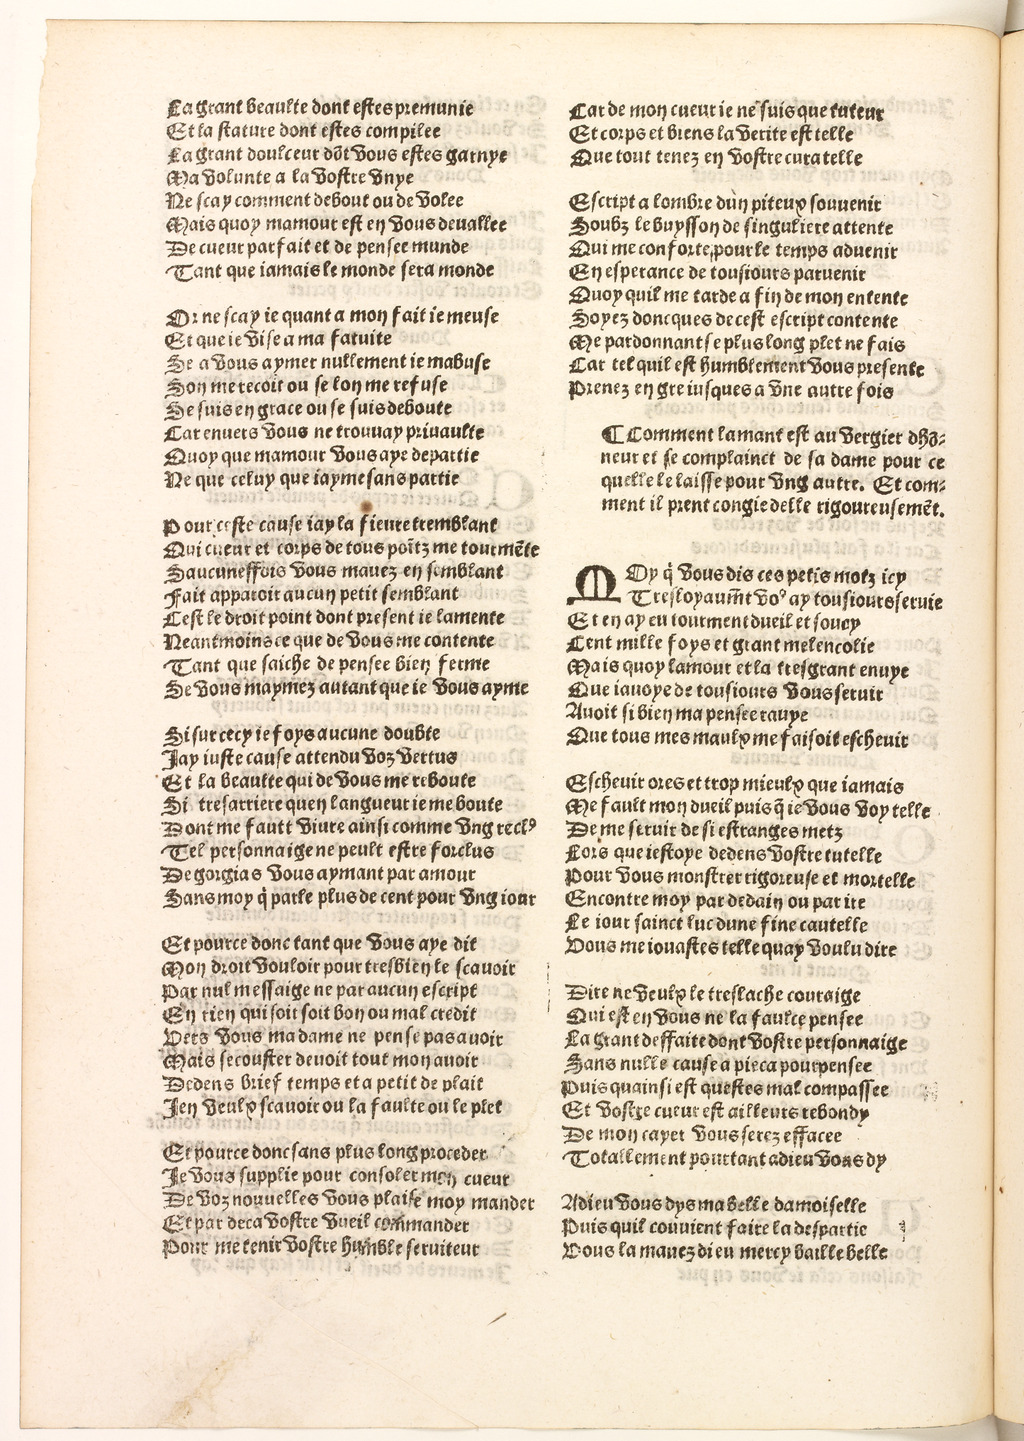 La grant beaulte dont estes premunie
Et la stature dont estes compilee
La grant doulceur dõt vous estes garnye
Ma volunte a la vostre vnye
Ne scay comment debout ou de volee
Mais quoy mamour est en vous deuallee
De cueur parfait et de pensee munde
Tant que iamais le monde sera monde
Or ne scay ie quant a mon fait ie meuse
Et que ie vise a ma fatuite
Se a vous aymer nullement ie mabuse
Son me recoit ou se lon me refuse
Se suis en grace ou se suis deboute
Car enuers vous ne trouuay priuaulte
Quoy que mamour vous aye departie
Ne que celuy que iayme sans partie
Pour ceste cause iay la fieure tremblant
Qui cueur et corps de tous poĩtz me tourmẽte
Saucuneffois vous mauez en semblant
Fait apparoir aucun petit semblant
Cest le droit point dont present ie lamente
Neantmoins ce que de vous me contente
Tant que saiche de pensee bien ferme
Se vous maymez autant que ie vous ayme
Si sur cecy ie foys aucune doubte
Jay iuste cause attendu voz vertus
Et la beaulte qui de vous me reboute
Si tresarriere quen langueur ie me boute
Dont me fautt viure ainsi comme vng reclꝰ
Tel personnaige ne peult estre forclus
De gorgias vous aymant par amour
Sans moy q̃ parle plus de cent pour vng iour
Et pource donc tant que vous aye dit
Mon droit vouloir pour tresbien le scauoir
Par nul messaige ne par aucun escript
En rien qui soit soit bon ou mal credit
Vers vous ma dame ne pense pas auoir
Mais se couster deuoit tout mon auoir
Dedens brief temps et a petit de plait
Jen veulx scauoir ou la faulte ou le plet
Et pource donc sans plus long proceder
Je vous supplie pour consoler mon cueur
De voz nouuelles vous plaise moy mander
Et par deca vostre vueil commander
Pour me tenir vostre humble seruiteur
Car de mon cueur ie ne suis que tuteur
Et corps et biens la verite est telle
Que tout tenez en vostre curatelle
Escript a lombre dun piteux souuenir
Soubz le buysson de singuliere attente
Qui me conforte pour le temps aduenir
En esperance de tousiours paruenir
Quoy quil me tarde a fin de mon entente
Soyez doncques de cest escript contente
Me pardonnant se plus long plet ne fais
Car tel quil est humblement vous presente
Prenez en gre iusques a vne autre fois
¶ Comment lamant est au vergier dhõ-
neur et se complainct de sa dame pour ce
quelle le laisse pour vng autre. Et com-
ment il prent congie delle rigoureusemẽt.
MOy q̃ vous dis ces petis motz icy
Tresloyaum̃t voꝰ ay tousiours seruie
Et en ay eu tourment dueil et soucy
Cent mille foys et grant melencolie
Mais quoy lamour et la tresgrant enuye
Que iauoye de tousiours vous seruir
Auoit si bien ma pensee rauye
Que tous mes maulx me faisoit escheuir
Escheuir ores et trop mieulx que iamais
Me fault mon dueil puis q̃ ie vous voy telle
De me seruir de si estranges metz
Lors que iestoye dedens vostre tutelle
Pour vous monstrer rigoreuse et mortelle
Encontre moy par dedain ou par ire
Le iour sainct luc dune fine cautelle
Vous me iouastes telle quay voulu dire
Dire ne veulx le treslache couraige
Qui est en vous ne la faulce pensee
La grant deffaite dont vostre personnaige
Sans nulle cause a pieca pourpensee
Puis quainsi est questes mal compassee
Et vostre cueur est ailleurs rebondy
De mon cayer vous serez effacee
Totallement pourtant adieu vous dy
Adieu vous dys ma belle damoiselle
Puis quil conuient faire la despartie
Vous la mauez dieu mercy baille belle